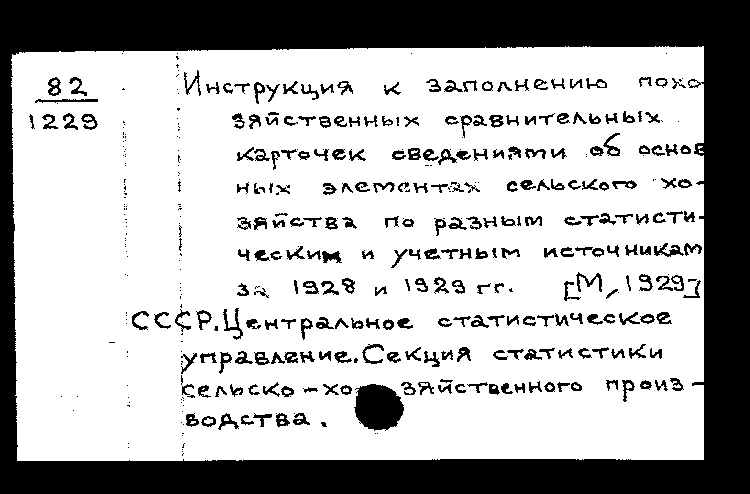 82
1229
Инструкция к заполнению похо-
зяйственных сравнительных
карточек сведениями об основ
ных элементах сельского хо-
зяйства по разным статисти-
ческим и учетным источникам
за 1928 и 1929 гг. [М, 1929]
СССР. Центральное статистическое
управление. Секция статистики
сельско-хозяйственного произ-
водства.